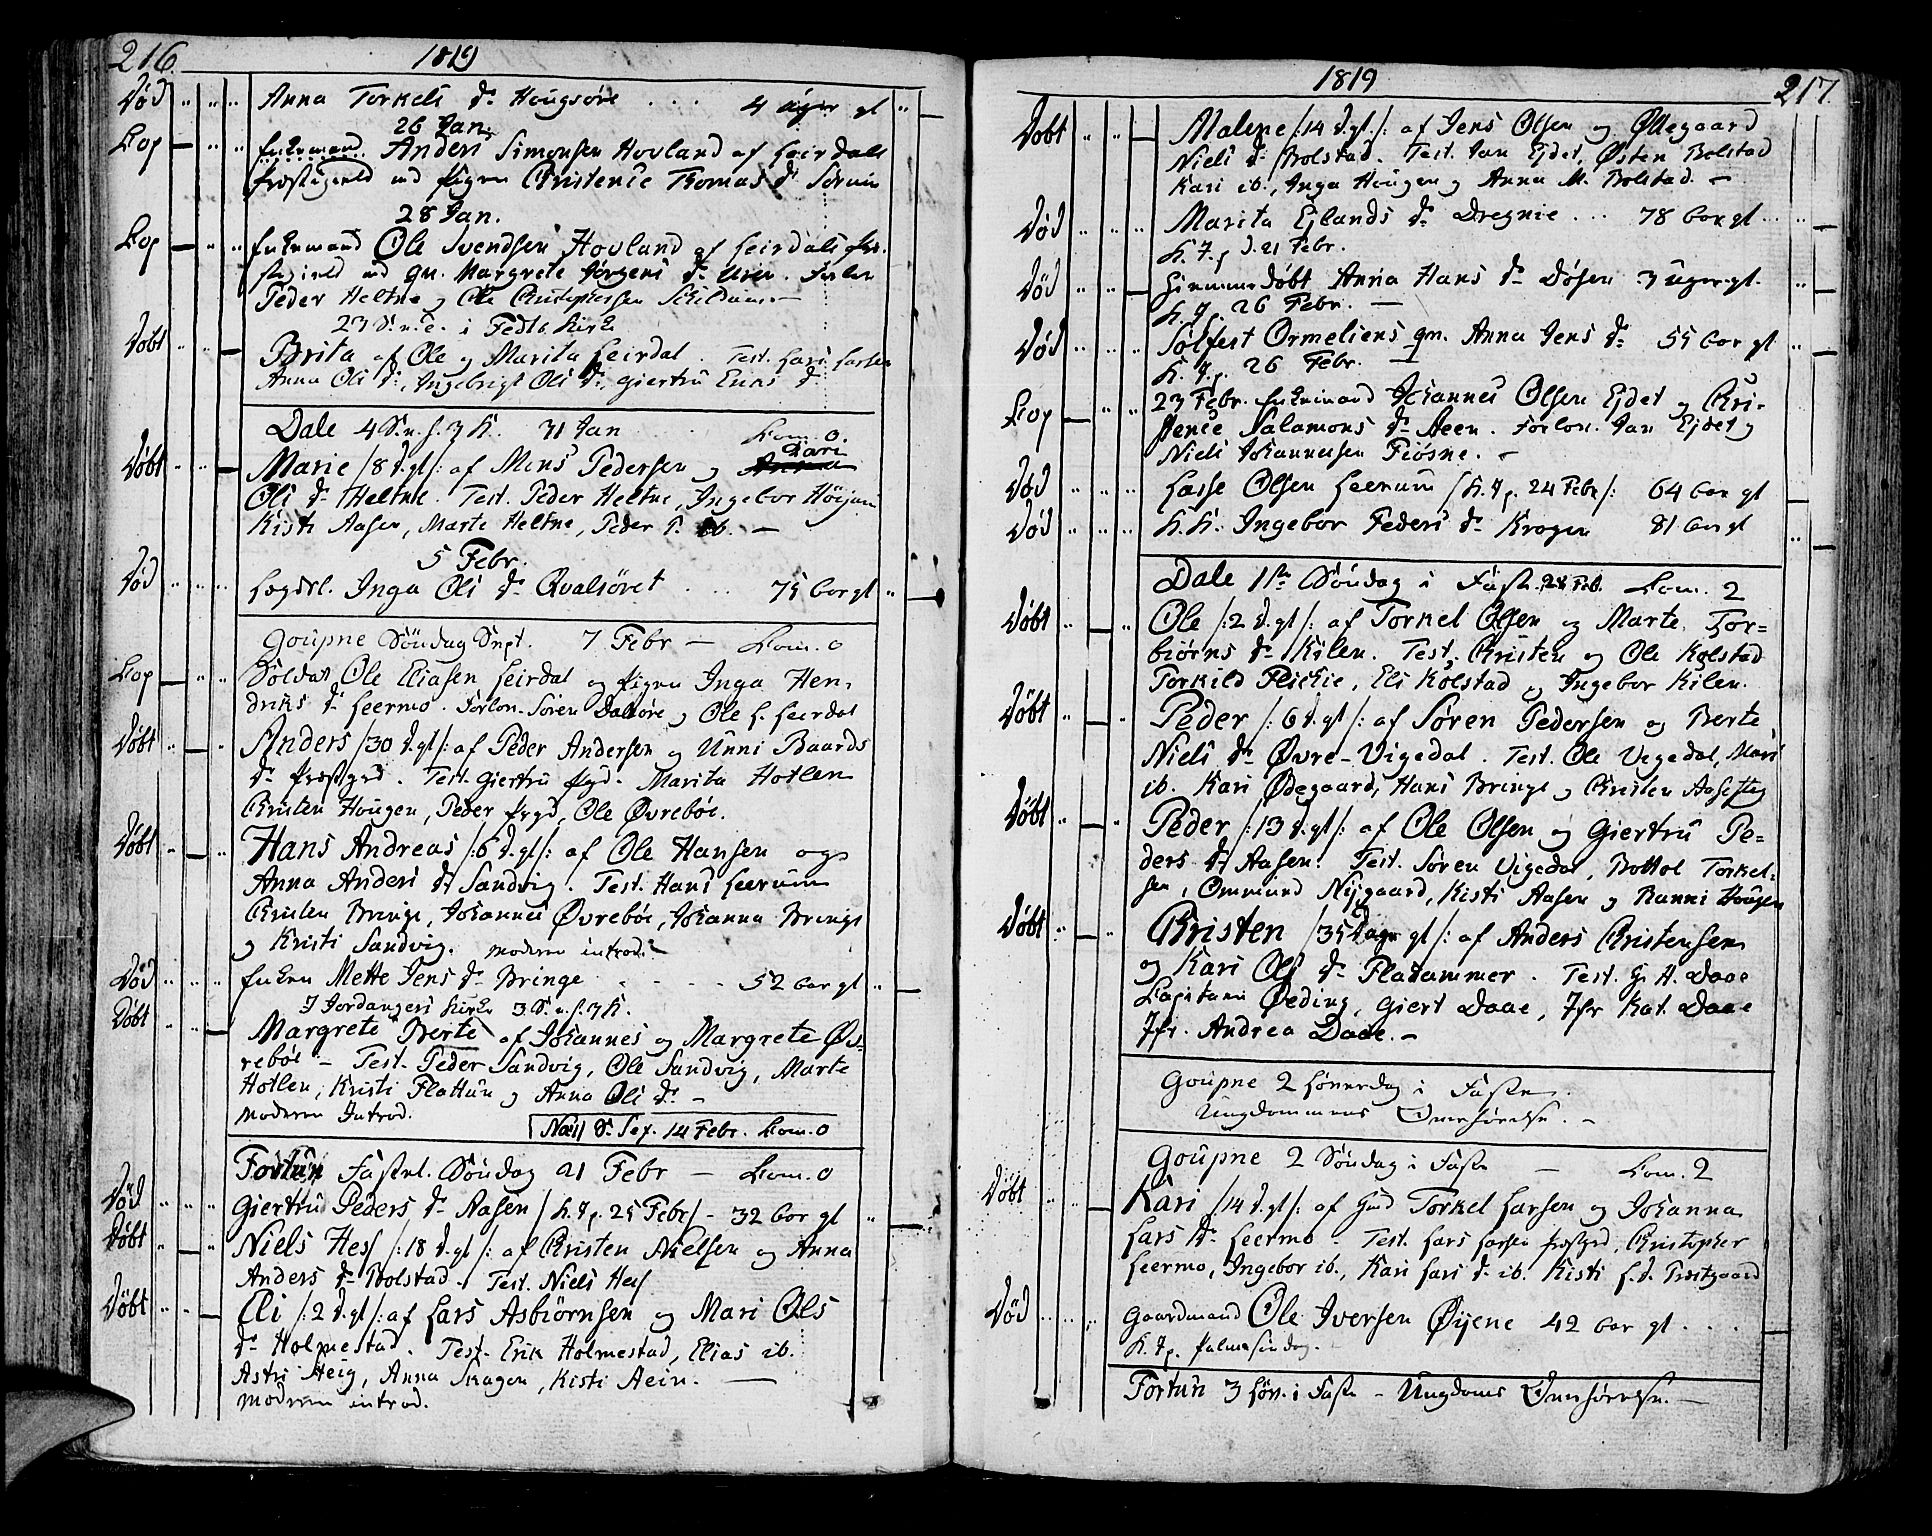 216. 1819
Død Anna Torkels Dr Hougsøre . . . 4 uger gl
26 Jan.
Cop Enkemand Anders Simonsen Hovland af Leirdals
Præstegield md pigen Christense Thomas Dr
28 Jan.
Cop Enkemand Ole Svendsen Hovland af Leirdals Præ-
stegield md qv. Margrete Jørgens Dr Uren. Forlov
Peder Heltne og Ole Christophersen
23 S. n. T. i Fedts Kirke
Døbt Brita af Ole og Marita Leirdal. Test. Lars Larsen
Anna Ols Dr, Ingebrigt Ols Dr, Giertru Dr
Dale 4 S. n. H. 3 K. 31 Jan Com. 0.
Kari
Døbt Marie /8 d. gl/: af Mons Pedersen og Anna
Ols Dr Heltne. Test. Peder Heltne, Ingebor
Kisti Aasen, Marte Heltne, Peder P. ib. —
5 Febr.
Død Lægdsl. Inga Ols Dr Qvalsøret . . . 75 aar gl
Goupne Søndag Sept. 7 Febr — Com. 0
Cop Soldat Ole Eliasen Leirdal og pigen Inga Hen-
driks Dr Leermo. Forlov. Søren Dalsøre og Ole L. Leirdal
Døbt Anders /30 d. gl/: af Peder Andersen og Unni Baards
Dr Præstgrd. Test. Giertru Prgd. Marita Hotlen
Christen Hougen, Peder Prgd, Ole Øvrebøe.
Døbt Hans Andreas /:6 d. gl/: af Ole Hansen og
Anna Anders Dr Sandvig. Test. Hans Leerum
Christen Bringe, Johannes Øvrebøe, Johanna Bringe
og Kristi Sandvig. moderen introd. —
Død Enken Mette Jens Dr Bringe . . . . 52 aar gl
I Jordangers Kirke 3 S. n. H. 3 K.
Døbt Margrete Berte af Johannes og Margrete Øv-
rebøe — Test. Peder Sandvig, Ole Sandvig, Marte
Hotlen, Kristi Flattun og Anna Ols Dr —
Moderen Introd.
Næs S. Sex. 14 Febr. Com. 0
Fortun Fastel. Søndag 21 Febr — Com. 0
Død Giertru Peders Dr Aasen /K. J. p. 25 Febr/ - 32 aar gl
Døbt Niels Hess /:18 d. gl/: af Christen Nielsen og Anna
Anders Dr Bolstad. Test. Niels Hess
Døbt Eli /:2 d. gl/: af Lars Asbiørnsen og Mari Ols
Dr Holmestad. Test. Erik Holmestad, Elias ib.
Astri Heig, Anna Skagen, Kisti Aein. —
Moderen introd.
1819 217.
Døbt Malene /:14 d. gl/: af Jens Olsen og Ødegaard
Niels Dr Bolstad. Test. Jan Ejdet, Østen Bolstad
Kari ib., Inga Hougen og Anna M. Bolstad. —
Død Marita Ejlands Dr Dregnie . . . 78 aar gl
K. J. p. d. 21 Febr.
Død Hiemmedøbt Anna Hans Dr Døsen 3 uger gl.
K. J. p. 26 Febr. —
Død Solfest Ormeliens qv. Anna Jens Dr 55 aar gl
K. J. p. 26 Febr. —
Cop 23 Febr. Enkemand Johannes Olsen Ejdet og Chri-
stence Salamons Dr Aeen. Forlov. Jan Ejdet og
Niels Johannessen Fiøsne. —
Død Lasse Olsen Leerum /K. J. p. 24 Febr/: 64 aar gl
Død K. K. Ingebor Peders Dr Krogen 81 aar gl
Dale 1ste Søndag i Faste 28 Feb. Com. 2
Døbt Ole /:2 d. gl/: af Torkel Olsen og Marte Tor-
biørns Dr Kilen. Test. Christen og Ole Kolstad
Torkild Flickie, Eli Kolstad og Ingebor Kilen.
Døbt Peder /:6 d. gl/: af Søren Pedersen og Berte
Niels Dr Øvre-Vigedal. Test. Ole Vigedal, Mari
ib. Kari Ødegaard, Hans Bringe og Christen
Døbt Peder /:13 d. gl/: af Ole Olsen og Giertru Pe-
ders Dr Aasen. Test. Søren Vigedal, Bottol Torkel-
sen, Ommund Nygaard, Kisti Aasen og Ranni Hougen
Døbt Christen /35 Dage gl/: af Anders Christensen
og Kari Ols Dr Fladammer. Test. H. Daae
Capitain Øeding, Giert Daae, Jfr Kat. Daae
Jfr. Andrea Daae. —
Goupne 2 Løverdag i Faste.
Ungdommens Overhørelse. —
Goupne 2 Søndag i Faste — Com. 2
Døbt Kari /14 d. gl/: af Torkel Larsen og Johanna
Lars Dr Leermo — Test. Lars Larsen Præstgrd, Christopher
Leermo, Ingebor ib., Kari Lars Dr ib. Kisti L. D. Prestgaard
Død Gaardmand Ole Iversen Øyene 42 aar gl . . .
K. J. p. Palmesøndag.
Fortun 3 Løv. i Faste — Ungdoms Overhørelse. —